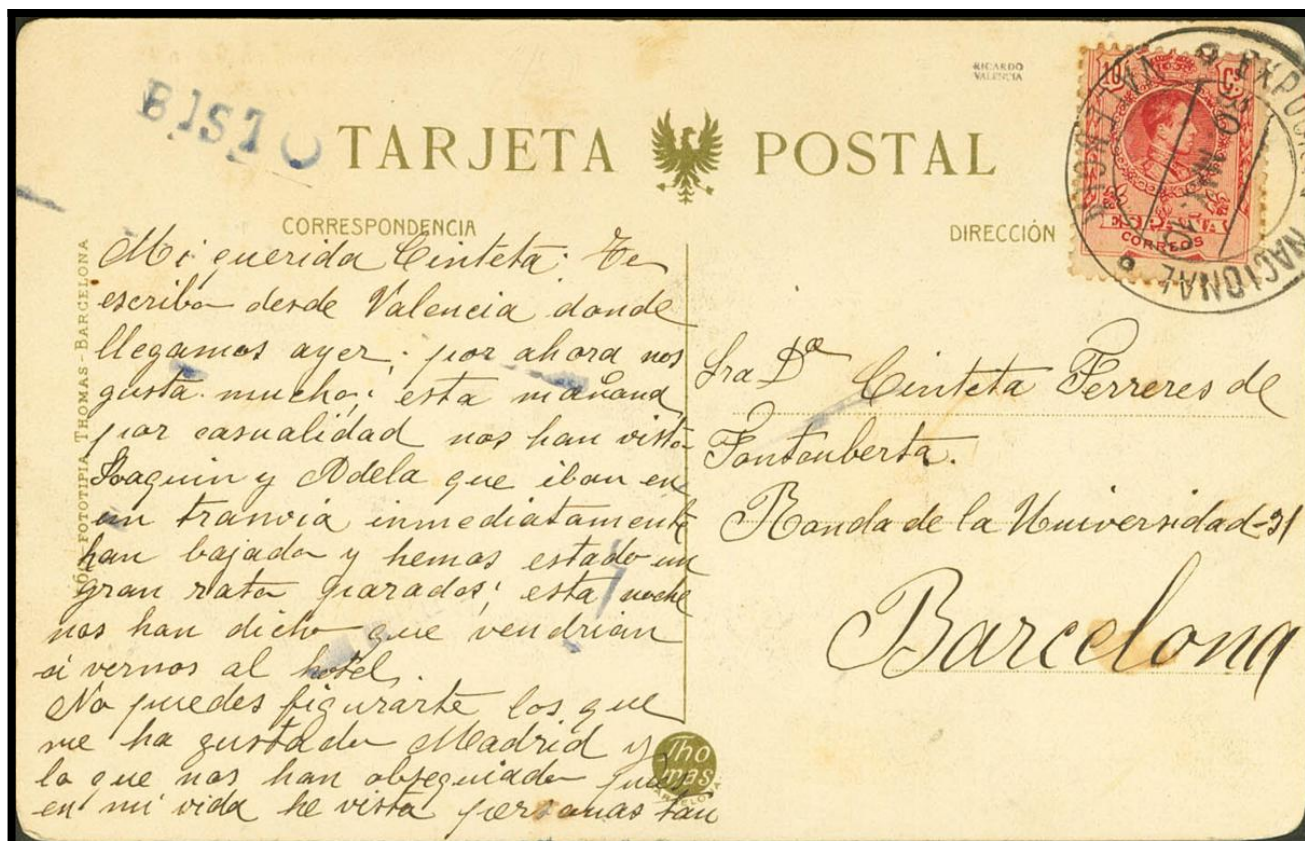 RICARDO
VALENCIA
TARJETA POSTAL
10 Cs
ESPAÑA
CORREOS
EXPOSICIÓN NACIONAL
VALENCIA
30 JUN 10
CORRESPONDENCIA
DIRECCIÓN
FOTOTIPIA THOMAS - BARCELONA
Mi querida Cinteta: Te
escribo desde Valencia donde
llegamos ayer; por ahora nos
gusta mucho; esta mañana
por casualidad nos han visto
Joaquin y Adela que iban en
un tranvia inmediatamente
han bajado y hemos estado un
gran rato parados; esta noche
nos han dicho que vendrian
á vernos al hotel.
No puedes figurarte los que
me ha gustado Madrid y
lo que nos han obsequiado pues
en mi vida he visto personas tan
Sra Dª Cinteta Ferreres de
Fontcuberta.
Ronda de la Universidad-31
Barcelona
Thomas
BARCELONA